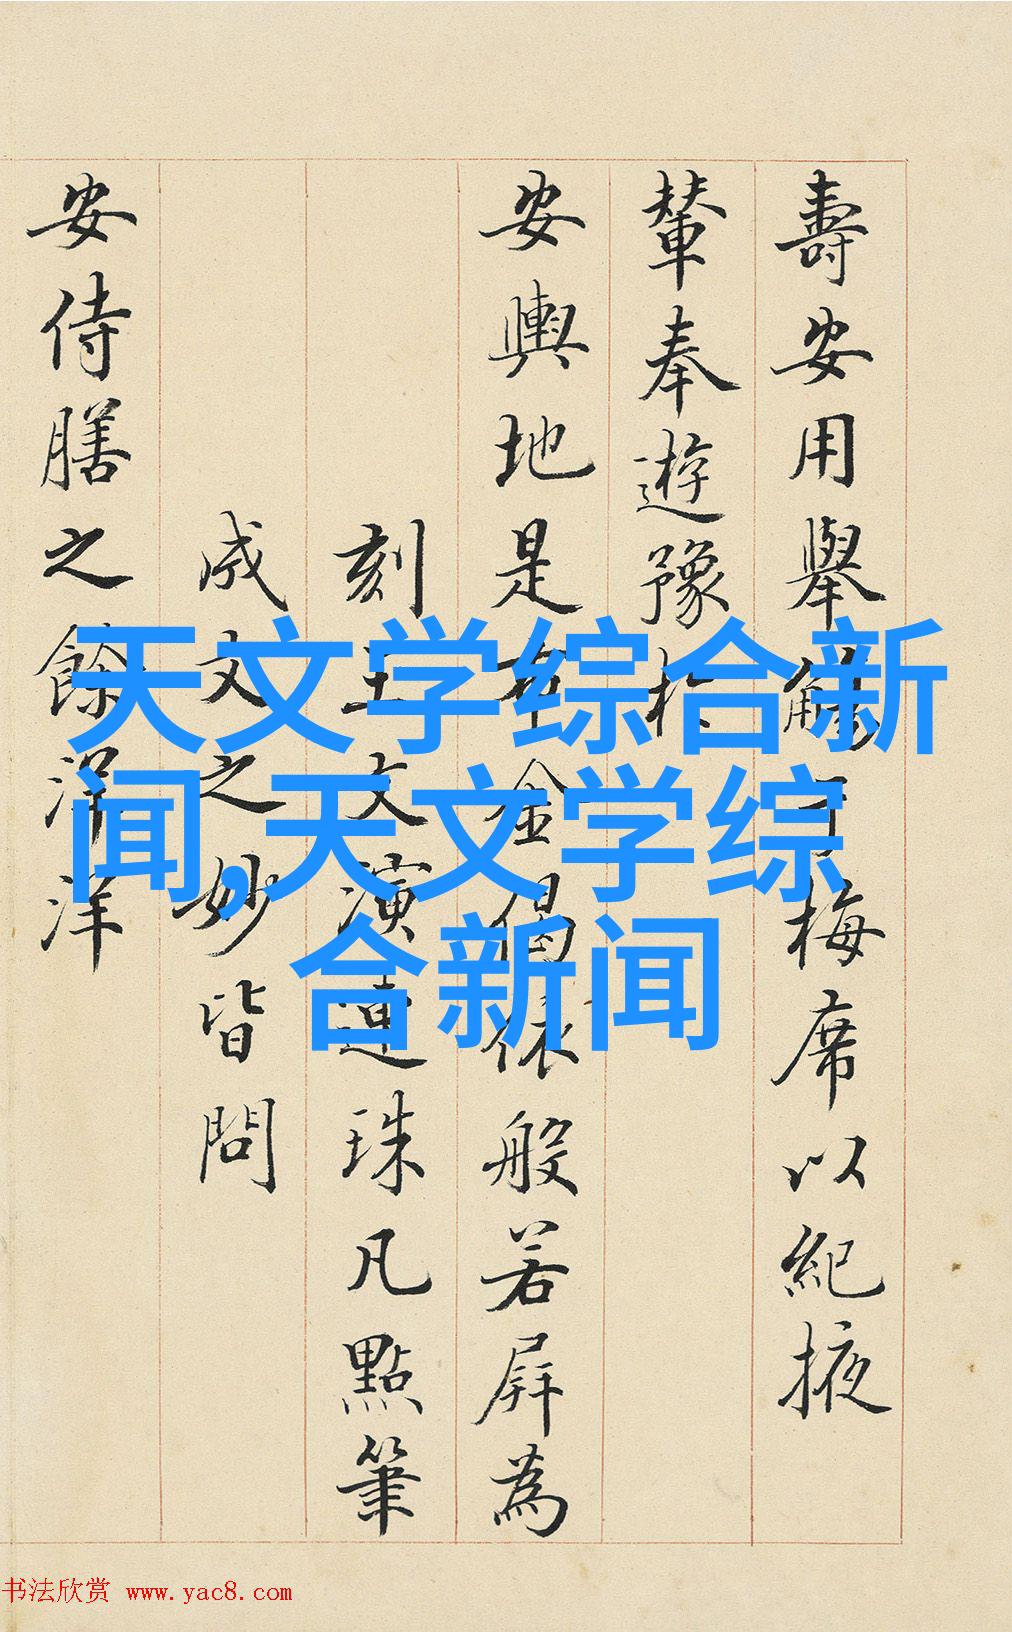 壽安用舉觴梅席以紀掖
輦奉遊豫
安輿地是布金偈依般若屏為
刻王文演連珠凡點筆
成文之妙皆問
安侍膳之餘洋
天文学综合新
闻,天文学综
合新闻
书法欣赏 www.yac8.com